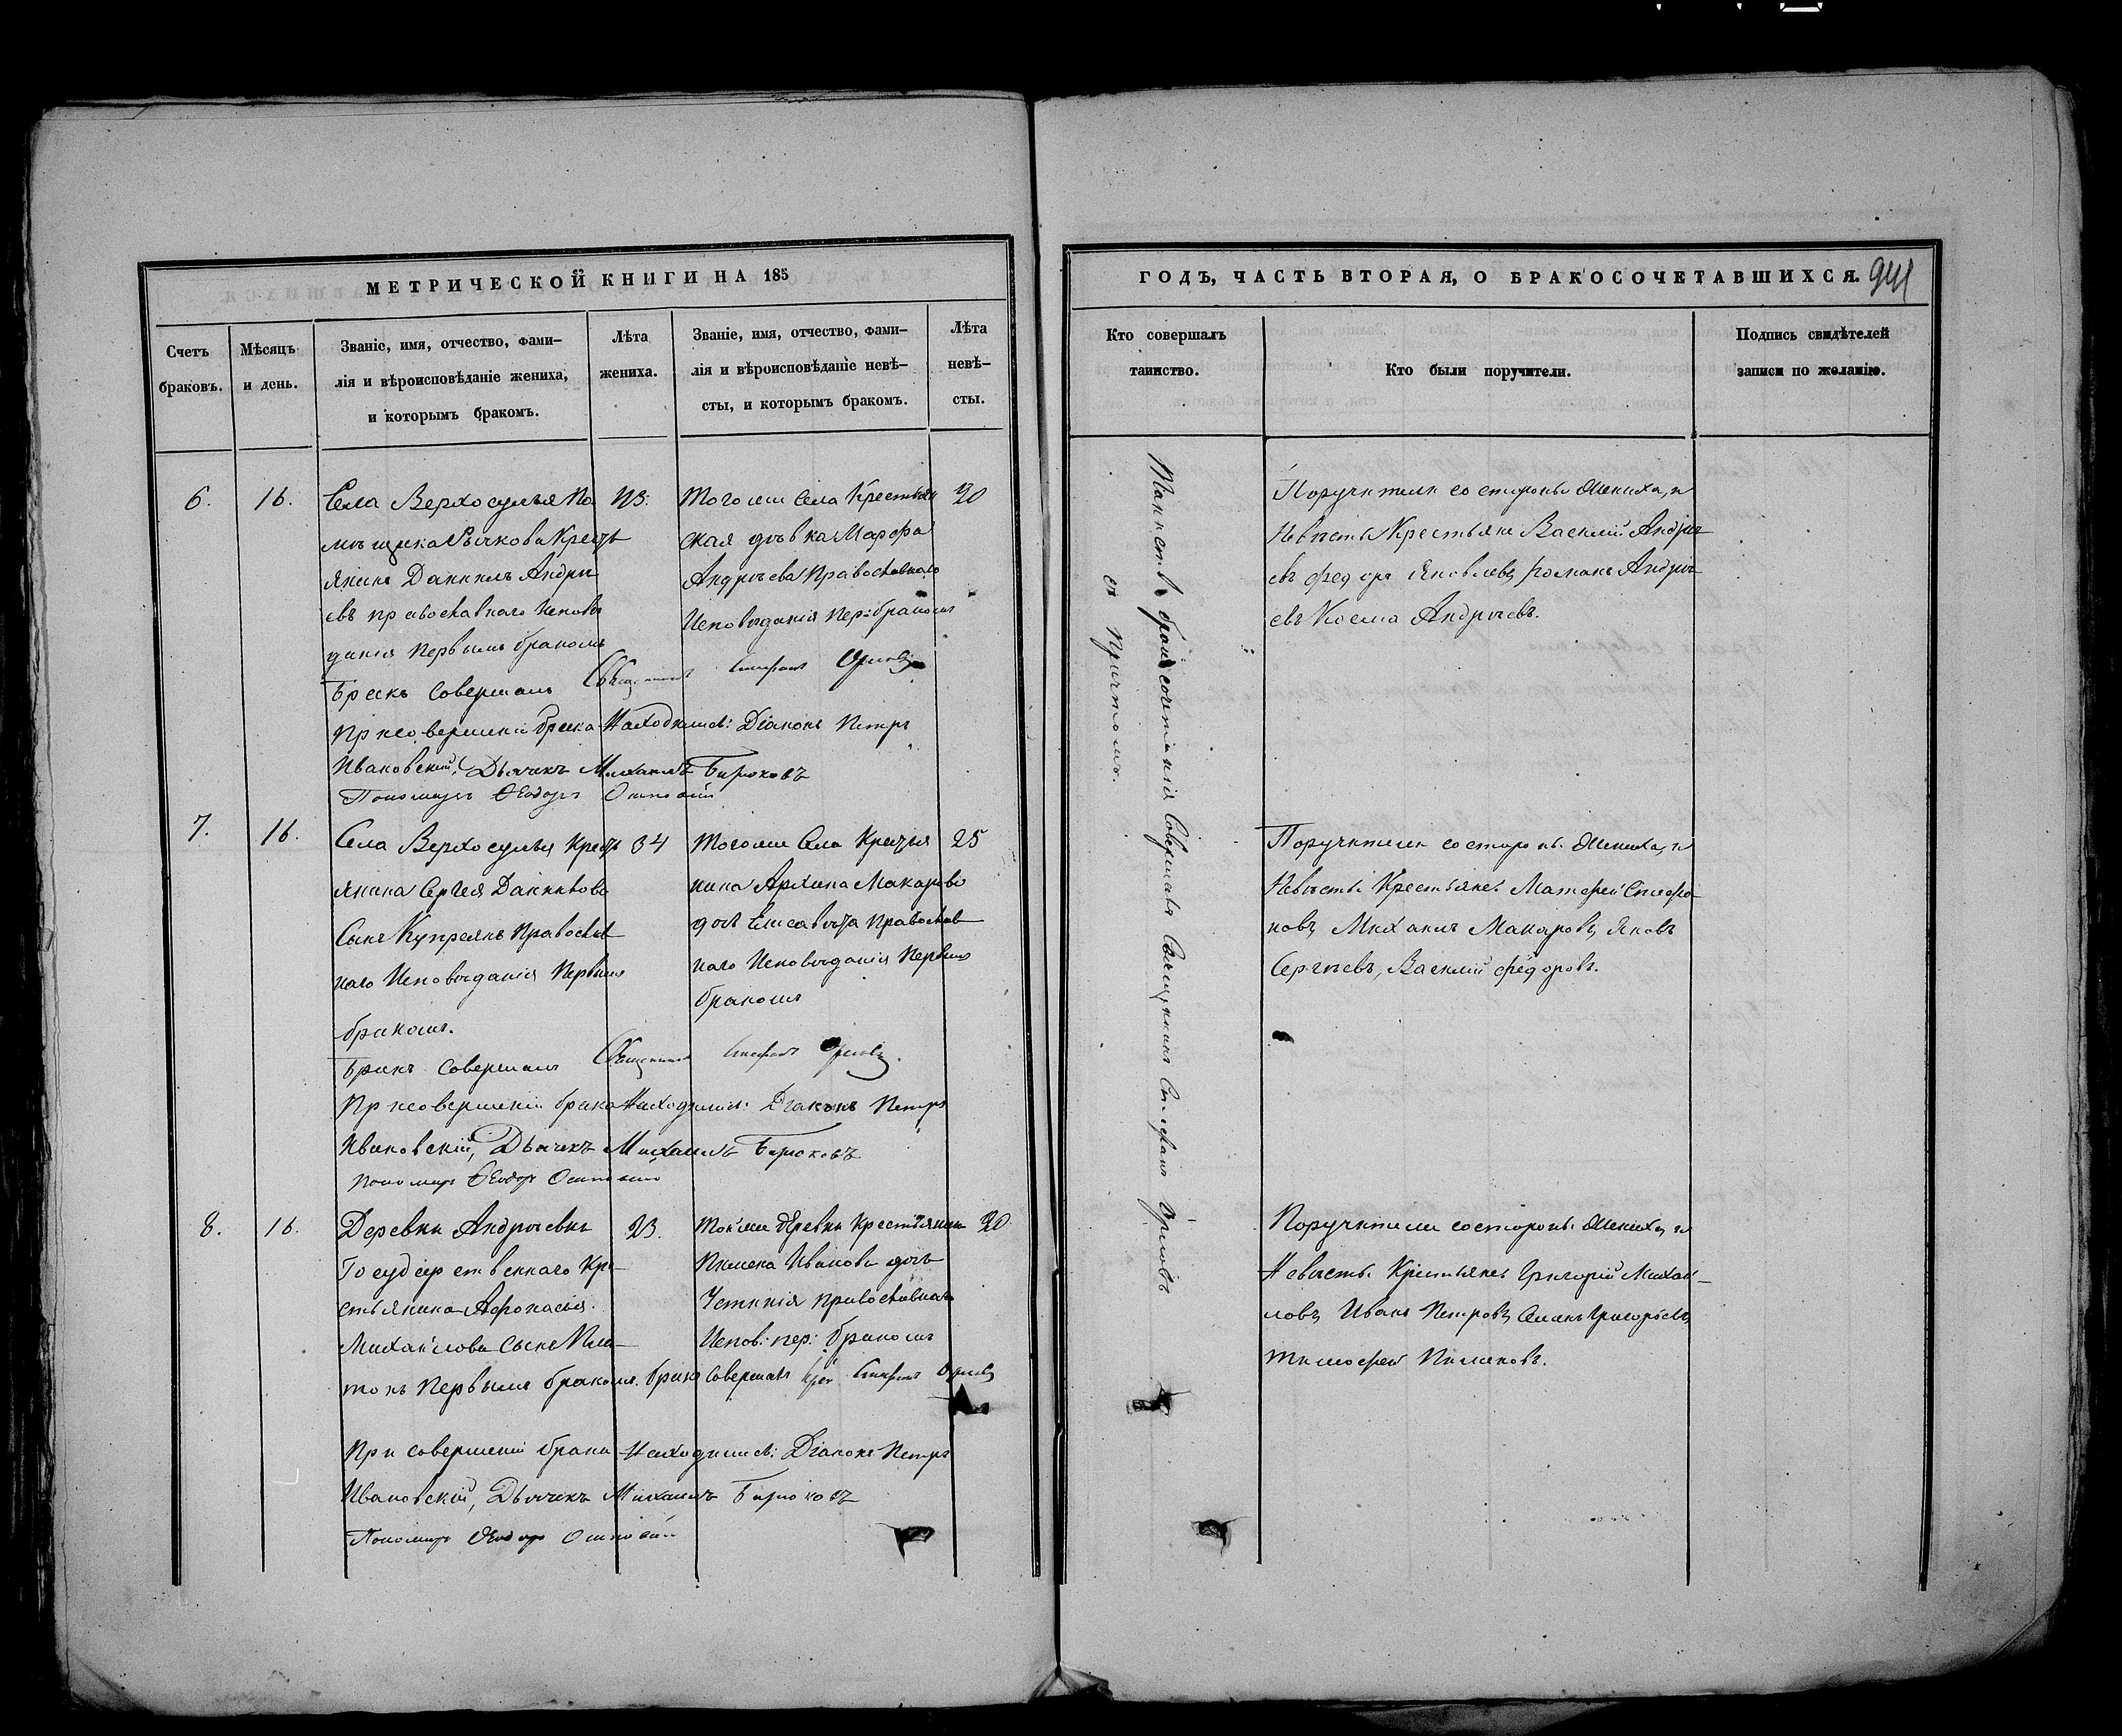 МЕТРИЧЕСКОЙ КНИГИ НА 185
Счетъ браковъ.
Мѣсяцъ и день.
Званіе, имя, отчество, фами-
лія и вѣроисповѣданіе жениха,
и которымъ бракомъ.
Лѣта жениха.
Званіе, имя, отчество, фами-
лія и вѣроисповѣданіе невѣ-
сты, и которымъ бракомъ.
Лѣта невѣ-
сты.
6. 16.
Села Верхосулья По
мѣщика Сычкова Крест
янинъ Даніилъ Андре
евъ православнаго исповѣ
данія первымъ бракомъ
23.
Того же села крестьян
ская дѣвка Марфа
Андреева православнаго
исповѣданія пер: бракомъ
20
Бракъ совершалъ Священникъ Стефанъ Орловъ
При совершеніи брака находились: Діаконъ Петръ
Ивановскій, Дьячекъ Михаилъ Бирюковъ
Пономарь Ѳеодоръ
7. 16.
Села Верхосулья крест
янина Сергея Данилова
сынъ Купреянъ православ
наго исповѣданія первымъ
бракомъ.
34
Того же села крестья
нина Архипа Макарова
дочь Елисавета православ
наго исповѣданія первымъ
бракомъ
25
Бракъ совершалъ Священникъ Стефанъ Орловъ.
При совершеніи брака находились: Діаконъ Петръ
Ивановскій, Дьячекъ Михаилъ Бирюковъ
Пономарь Ѳеодоръ
8. 16.
Деревни Андреевки
Государственнаго кре-
стьянина Афонасья
Михайлова сынъ Пла-
тонъ первымъ бракомъ.
23.
Той же деревни крестьянина
Пимена Иванова дочь
Устинія православнаго
испов: пер: бракомъ
20
бракъ совершалъ Стефанъ Орловъ
При совершеніи брака находились: Діаконъ Петръ
Ивановскій, Дьячекъ Михаилъ Бирюковъ
Пономарь Ѳеодоръ
ГОДЪ, ЧАСТЬ ВТОРАЯ, О БРАКОСОЧЕТАВШИХСЯ.
Кто совершалъ
таинство.
Кто были поручители.
Подпись свидѣтелей
записи по желанію.
Таинство бракосочетанія совершалъ Священникъ Стефанъ Орловъ
съ причтомъ.
Поручители со стороны жениха, и
невѣсты крестьяне Василій Андре
евъ Федоръ Яковлевъ, Романъ Андре
евъ Косма Андреевъ.
Поручители со стороны жениха, и
невѣсты крестьяне Матфей Стефа-
новъ, Михаилъ Макаровъ, Яковъ
Сергѣевъ, Василій Федоровъ.
Поручители со стороны жениха, и
невѣсты крестьяне Григорій Михай-
ловъ, Иванъ Петровъ, Григорьевъ,
Тимофей Пименовъ.